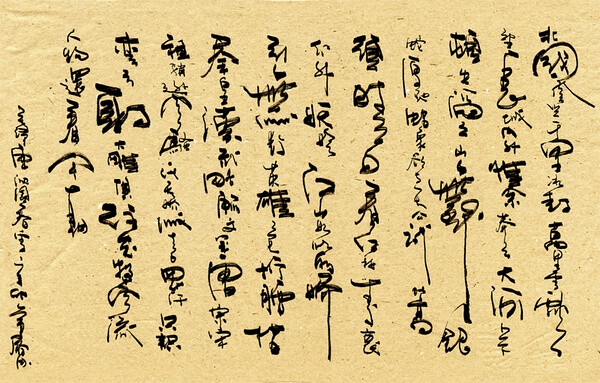 北國風光千里冰封萬里雪飄
望長城內外惟餘莽莽大河上下
頓失滔滔山舞銀
蛇原馳蠟象欲與天公試比高
須晴日看紅裝素裹
分外妖嬈江山如此多嬌
引無數英雄競折腰惜
秦皇漢武略輸文采唐宗宋
祖稍遜風騷一代天驕成吉思汗只識
彎弓射大雕俱往矣數風流
人物還看今朝
毛澤東沁園春雪